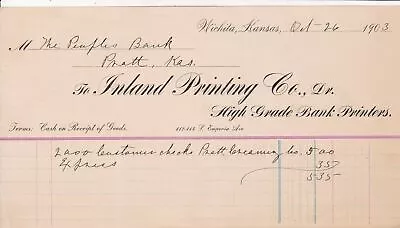 Wichita, Kansas, Oct - 26 1903
M The Peoples Bank
Pratt, Kas.
To Inland Printing Co., Dr.
High Grade Bank Printers.
Terms: Cash on Receipt of Goods. 112-114 S. Emporia Ave
2000 Customer checks Pratt Creamery Co. 5.00
Express 35
5.35